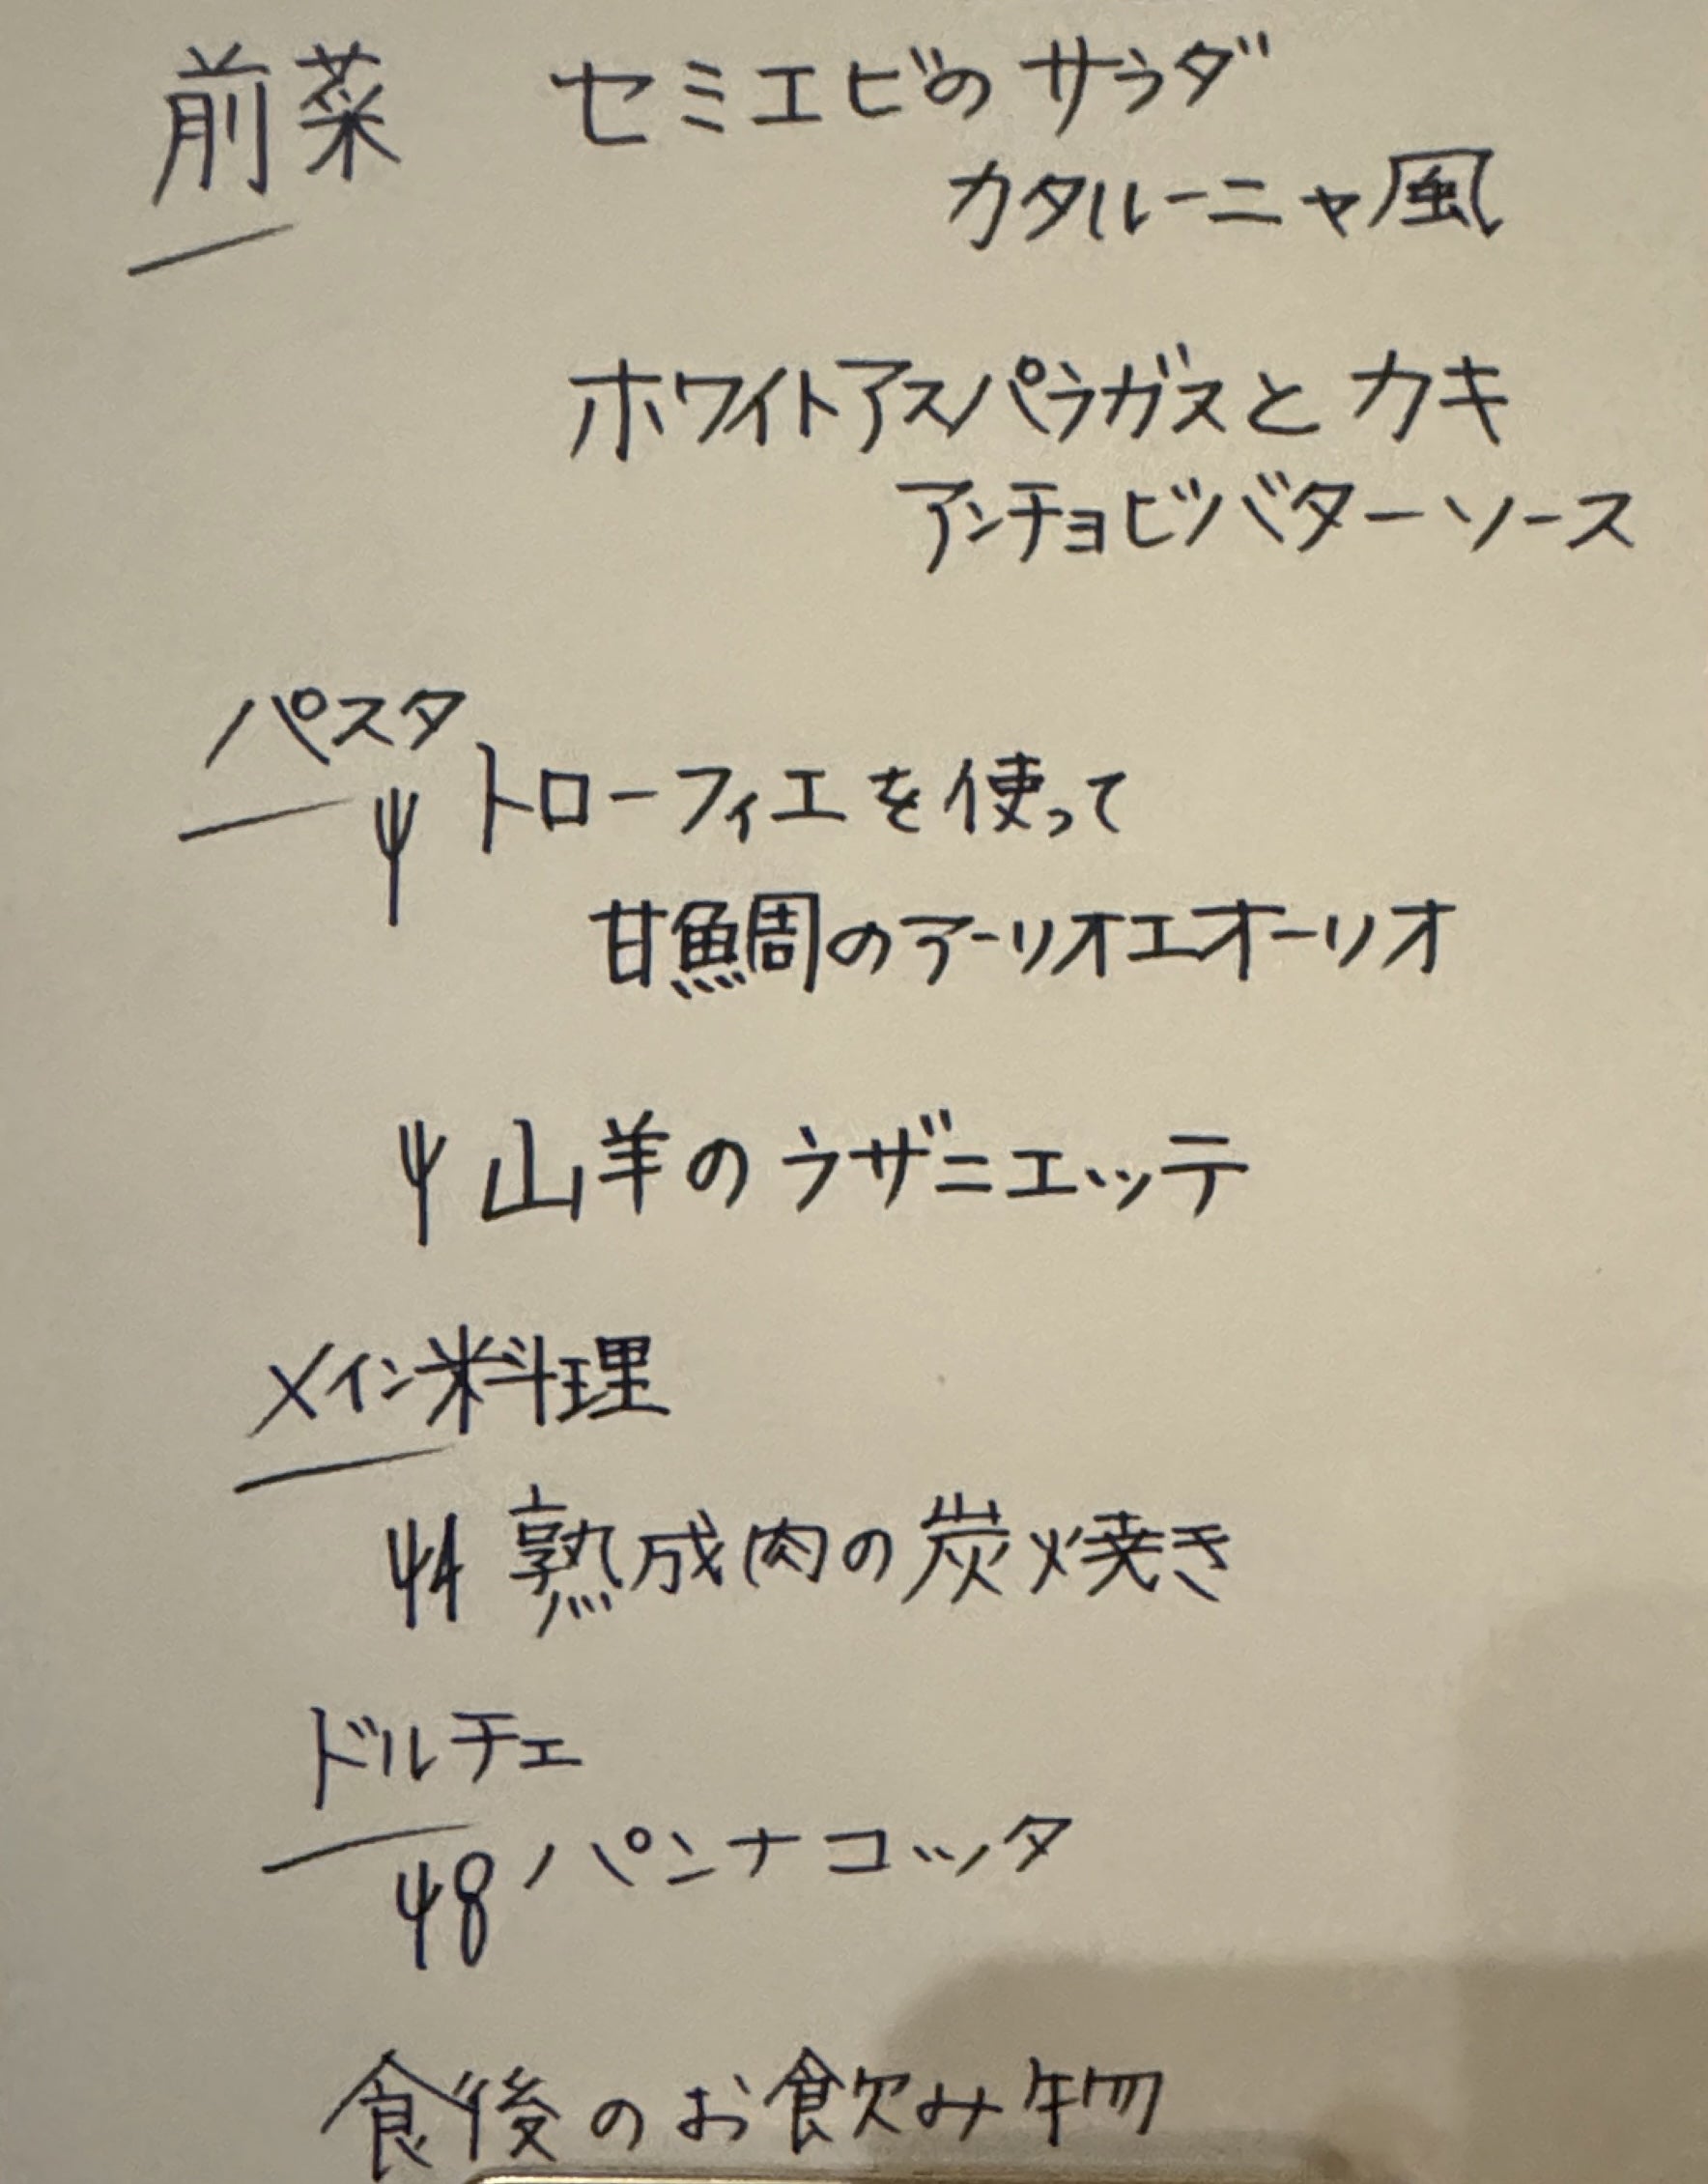 前菜 セミエビのサラダ
カタルーニャ風
ホワイトアスパラガスとカキ
アンチョビバターソース
パスタ
トローフィエを使って
甘鯛のアーリオエオーリオ
山羊のラザニエッテ
メイン料理
熟成肉の炭火焼き
ドルチェ
パンナコッタ
食後のお飲み物